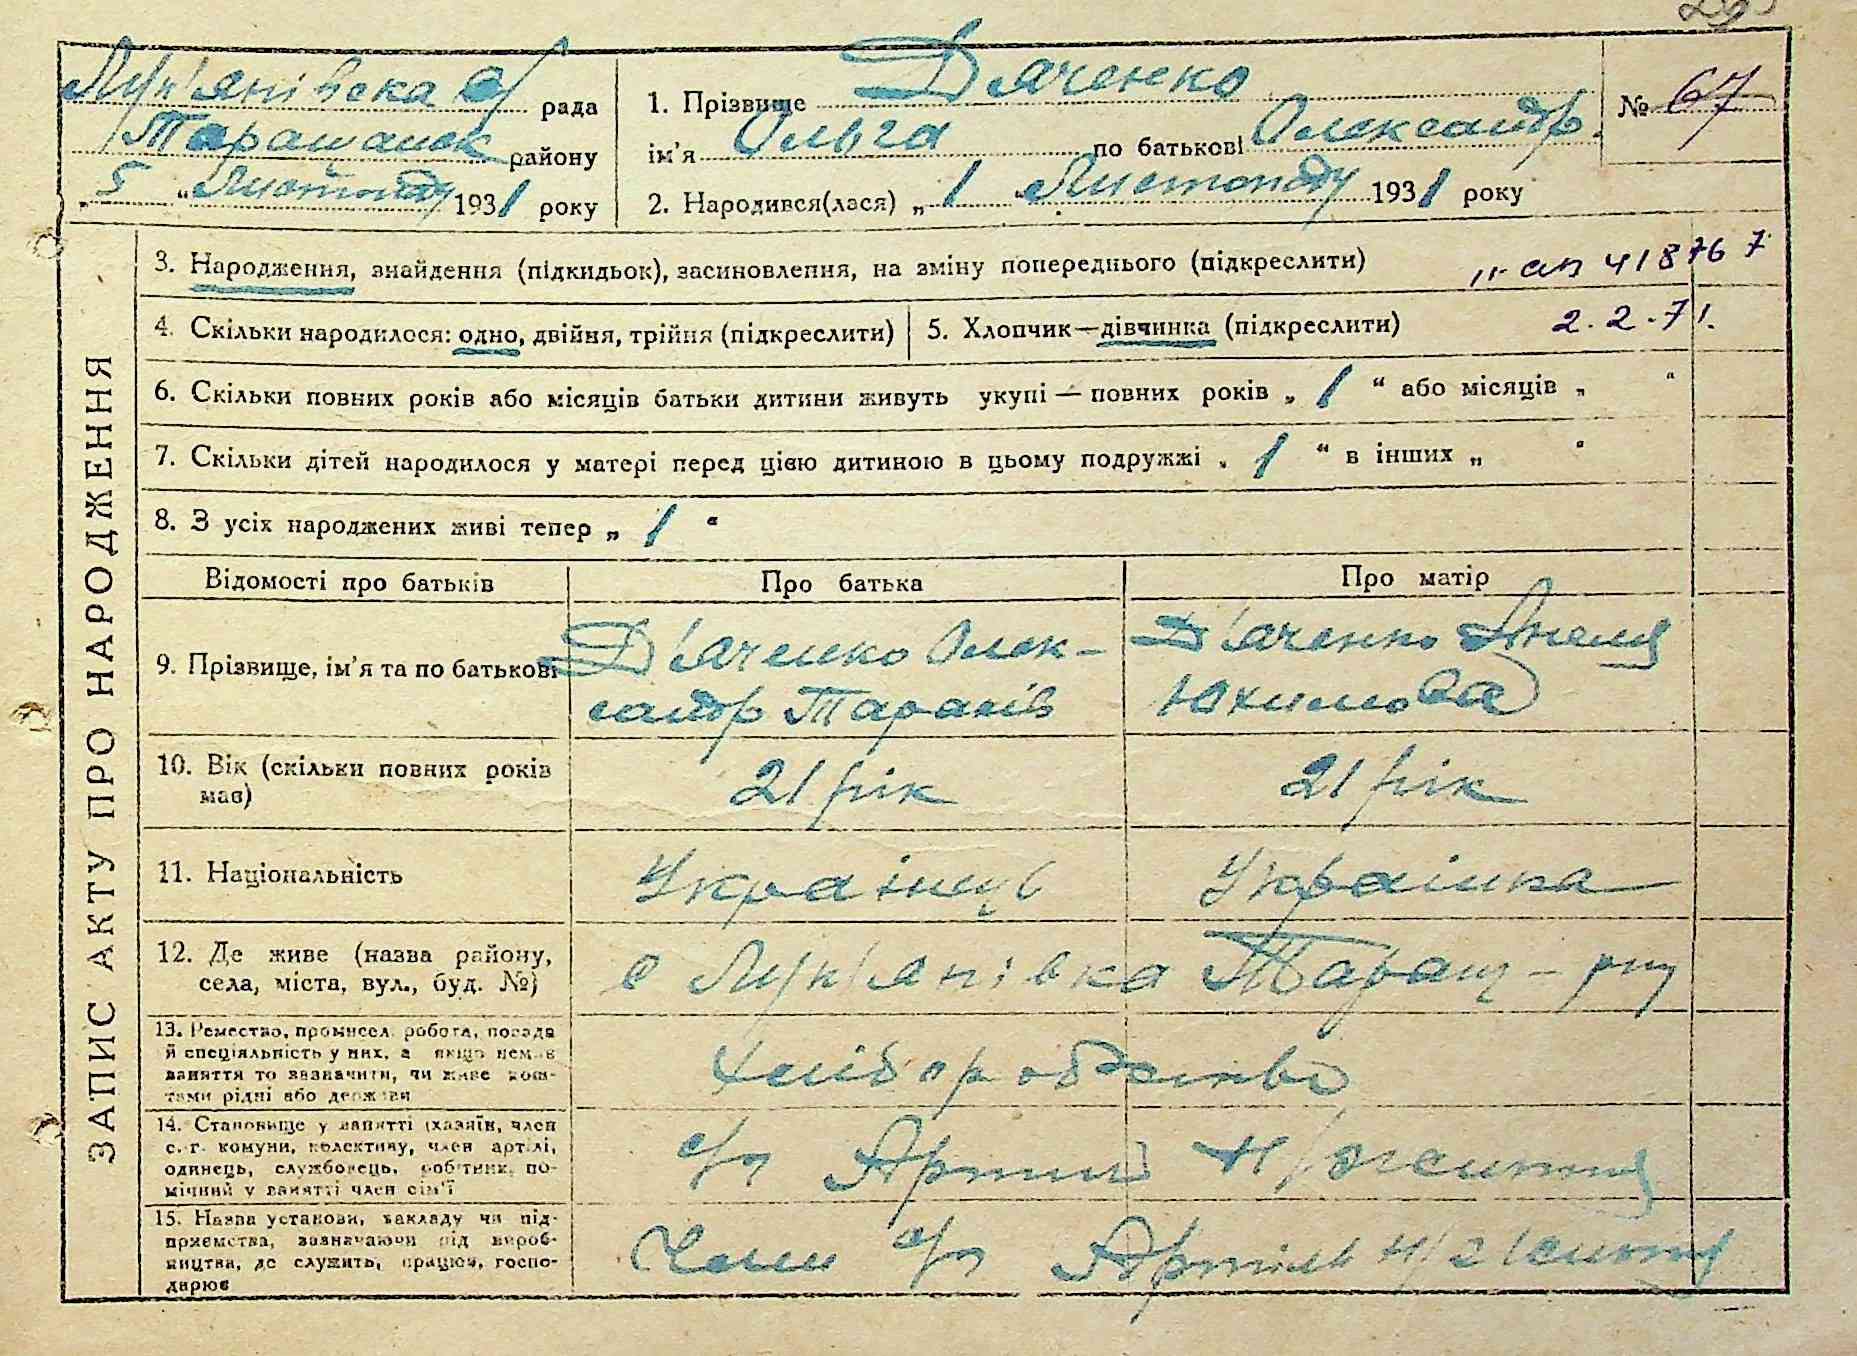 Лук'янівська с/ рада
Таращанськ району
„5“ Листопаду 1931 року
1. Прізвище Дяченко
ім'я Ольга по батькові Олександр.
2. Народився(лася) „1“ Листопаду 1931 року
№ 67
3. Народження, знайдення (підкидьок), засиновлення, на зміну попереднього (підкреслити)
418767
4. Скільки народилося: одно, двійня, трійня (підкреслити)
5. Хлопчик—дівчинка (підкреслити)
2.2.71.
6. Скільки повних років або місяців батьки дитини живуть укупі — повних років „1“ або місяців „ “
7. Скільки дітей народилося у матері перед цією дитиною в цьому подружжі „1“ в інших „ “
8. З усіх народжених живі тепер „1“
ЗАПИС АКТУ ПРО НАРОДЖЕННЯ
Відомості про батьків
Про батька
Про матір
9. Прізвище, ім'я та по батькові
Д'яченко Олек-
сандр Тарасів
Д'яченко
Юхимова
10. Вік (скільки повних років
мав)
21 рік
21 рік
11. Національність
Українець
Українка
12. Де живе (назва району,
села, міста, вул., буд. №)
с Лук'янівка Таращ - р-ну
13. Ремество, промисел, робота, посада
й спеціяльність у них, а якщо немає
заняття то зазначити, чи живе кош-
тами рідні або держави
Хліборобство
14. Становище у занятті (хазяїн, член
с.-г. комуни, колективу, член артілі,
одинець, службовець, робітник, по-
мічний у занятті член сім'ї
с/г Артілі
15. Назва установи, закладу чи під-
приємства, зазначаючи рід вироб-
ництва, де служить, працює, госпо-
дарює
Член с/г Артілі